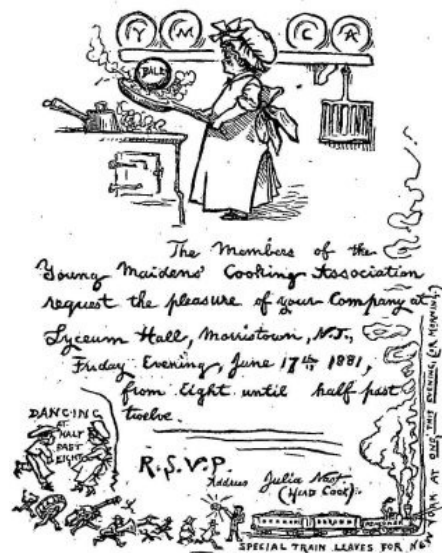 Y M C A
BALL
The Members of the
Young Maidens' Cooking Association
request the pleasure of your Company at
Lyceum Hall, Morristown, N.J.,
Friday Evening, June 17th 1881,
from Eight until half past
twelve.
DANCING
AT
HALF
PAST
EIGHT
R.S.V.P
Address Julia
(HEAD COOK).
SPECIAL TRAIN LEAVES FOR NEW YORK AT ONE, THIS EVENING, (OR MORNING.)